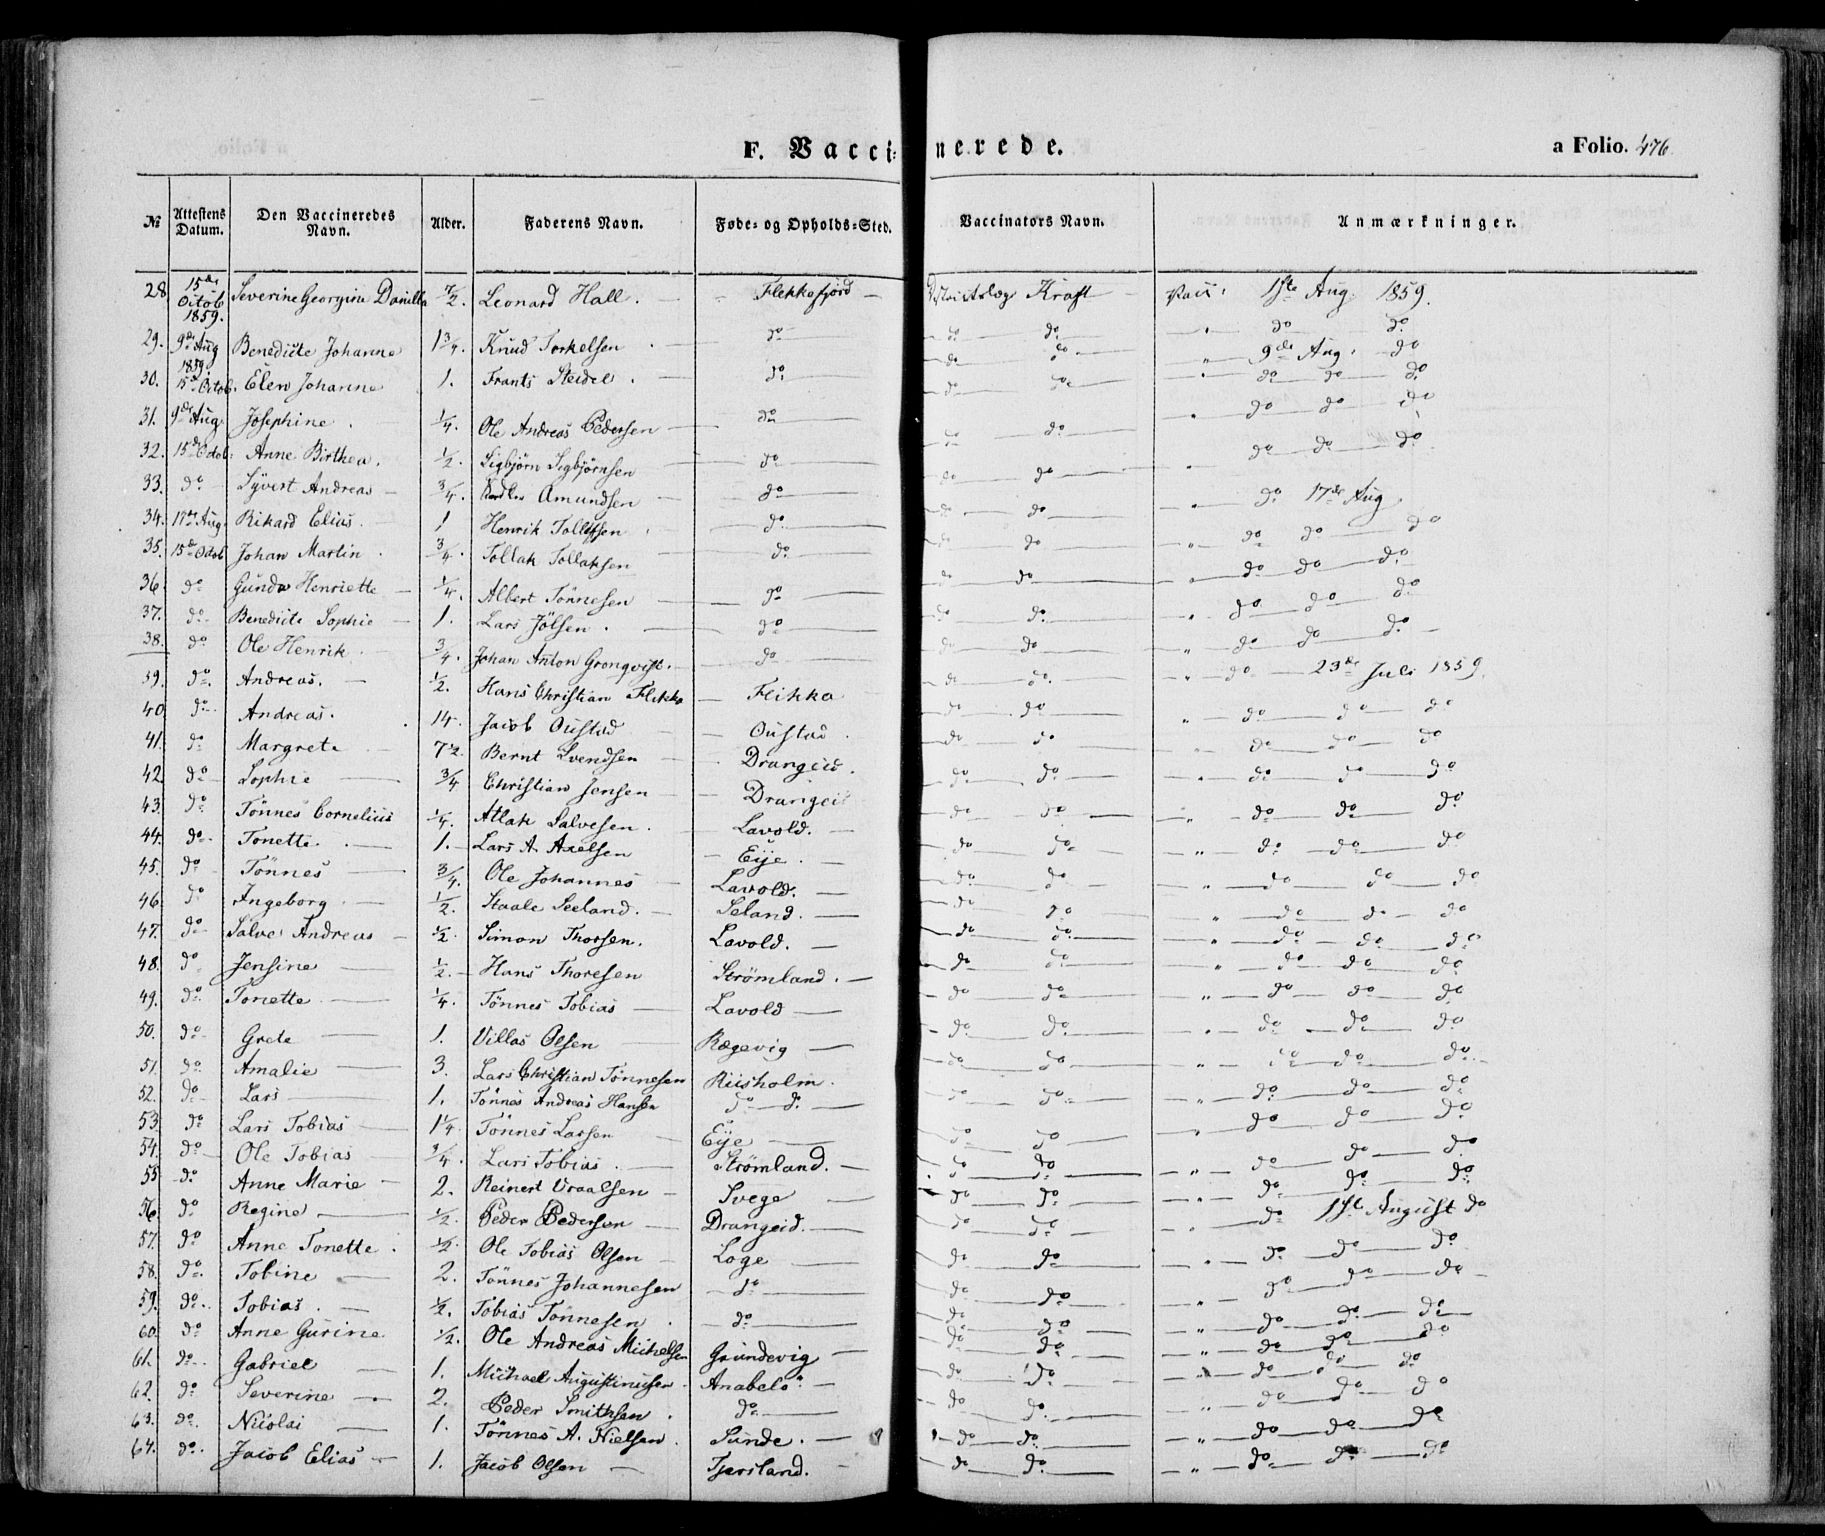 F. Vaccinerede.
a Folio. 476.
№ Attestens Datum. Den Vaccineredes Navn. Alder. Faderens Navn. Føde- og Opholds-Sted. Vaccinators Navn. Anmærkninger.
28 15de Octob 1859. Severine Georgine Danilla ½. Leonard Hall. Flekkefjord Kraft Vacc. 1ste Aug. 1859.
29. 9de Aug 1859. Benedicte Johanne 1¾. Knud Torkelsen do do do " do do
30. 15de Octob: Elen Johanne 1. Frants Steidel. do do do " 9de Aug. do
31. 9de Aug. Josephine. ¼. Ole Andreas Pedersen do do do " do do do
32. 15de Octob: Anne Birthea. ½. Sigbjörn Sigbjörnsen do do do " do do do
33. do Syvert Andreas ¾. Amundsen do do do " do do do
34. 17de Aug. Rikard Elias. 1 Henrik Tollefsen do do do " do 17de Aug
35. 15de Octob Johan Martin. ¾. Tollak Tollaksen do do do " do do do
36. do Gunda Henriette ¼. Albert Tönnesen do do do " do do do
37. do Benedicte Sophie 1. Lars Jölsen. do do do " do do do
38. do Ole Henrik. ¾. Johan Anton Gronqvist. do do do " do do do
39. do Andreas. ½. Hans Christian Flikka Flikka do do " do 23de Juli 1859.
40. do Andreas. 14. Jacob Oustad Oustad. do do " do do do
41. do Margrete 7½. Bernt Svendsen Drangeid. do do " do do do
42 do Sophie ¾ Christian Jensen Drangeid do do " do do do
43. do Tönnes Cornelius ¼. Atlak Salvesen. Lavold. do do " do do do
44. do Tonette. 1. Lars A. Axelsen Eije. do do " do do do
45. do Tönnes ¾. Ole Johannes Lavold. do do " do do do
46. do Ingeborg. ½. Staale Seeland. Seland. do do " do do do
47. do Salve Andreas ½. Simon Thorsen. Lavold. do do " do do do
48. do Jensine ½. Hans Thoresen Strömland. do do " do do do
49. do Tonette ¼. Tönnes Tobias Lavold do do " do do do
50. do Grete 1. Villas Olsen Rægevig do do " do do do
51. do Amalie 3. Lars Christian Tönnesen Riisholm. do do " do do do
52. do Lars 1. Tönnes Andreas Hansen do do. do do " do do do
53. do Lars Tobias 1¼. Tönnes Larsen Eije do do " do do do
54. do Ole Tobias ¾. Lars Tobias. Strömland. do do " do do do
55 do Anne Marie 2. Reinert Vraalsen Svege do do " do do do
56. do Regine ½. Peder Pedersen Drangeid. do do " do 1ste August do
57. do Anne Tonette. ½. Ole Tobias Olsen Loge do do " do do do
58. do Tobine 2. Tönnes Johannesen do do do " do do do
59. do Tobias. ½. Tobias Tönnesen do do do " do do do
60. do Anne Gurine ½. Ole Andreas Michelsen Grundevig do do " do do do
61. do Gabriel 1. Michael Augustinusen Anabels: do do " do do do
62. do Severine 2. Peder Smithsen. do do do " do do do
63. do Nicolai 1. Tönnes A. Nielsen. Sunde. do do " do do do
64. do Jacob Elias 1. Jacob Olsen Tjersland. do do " do do do